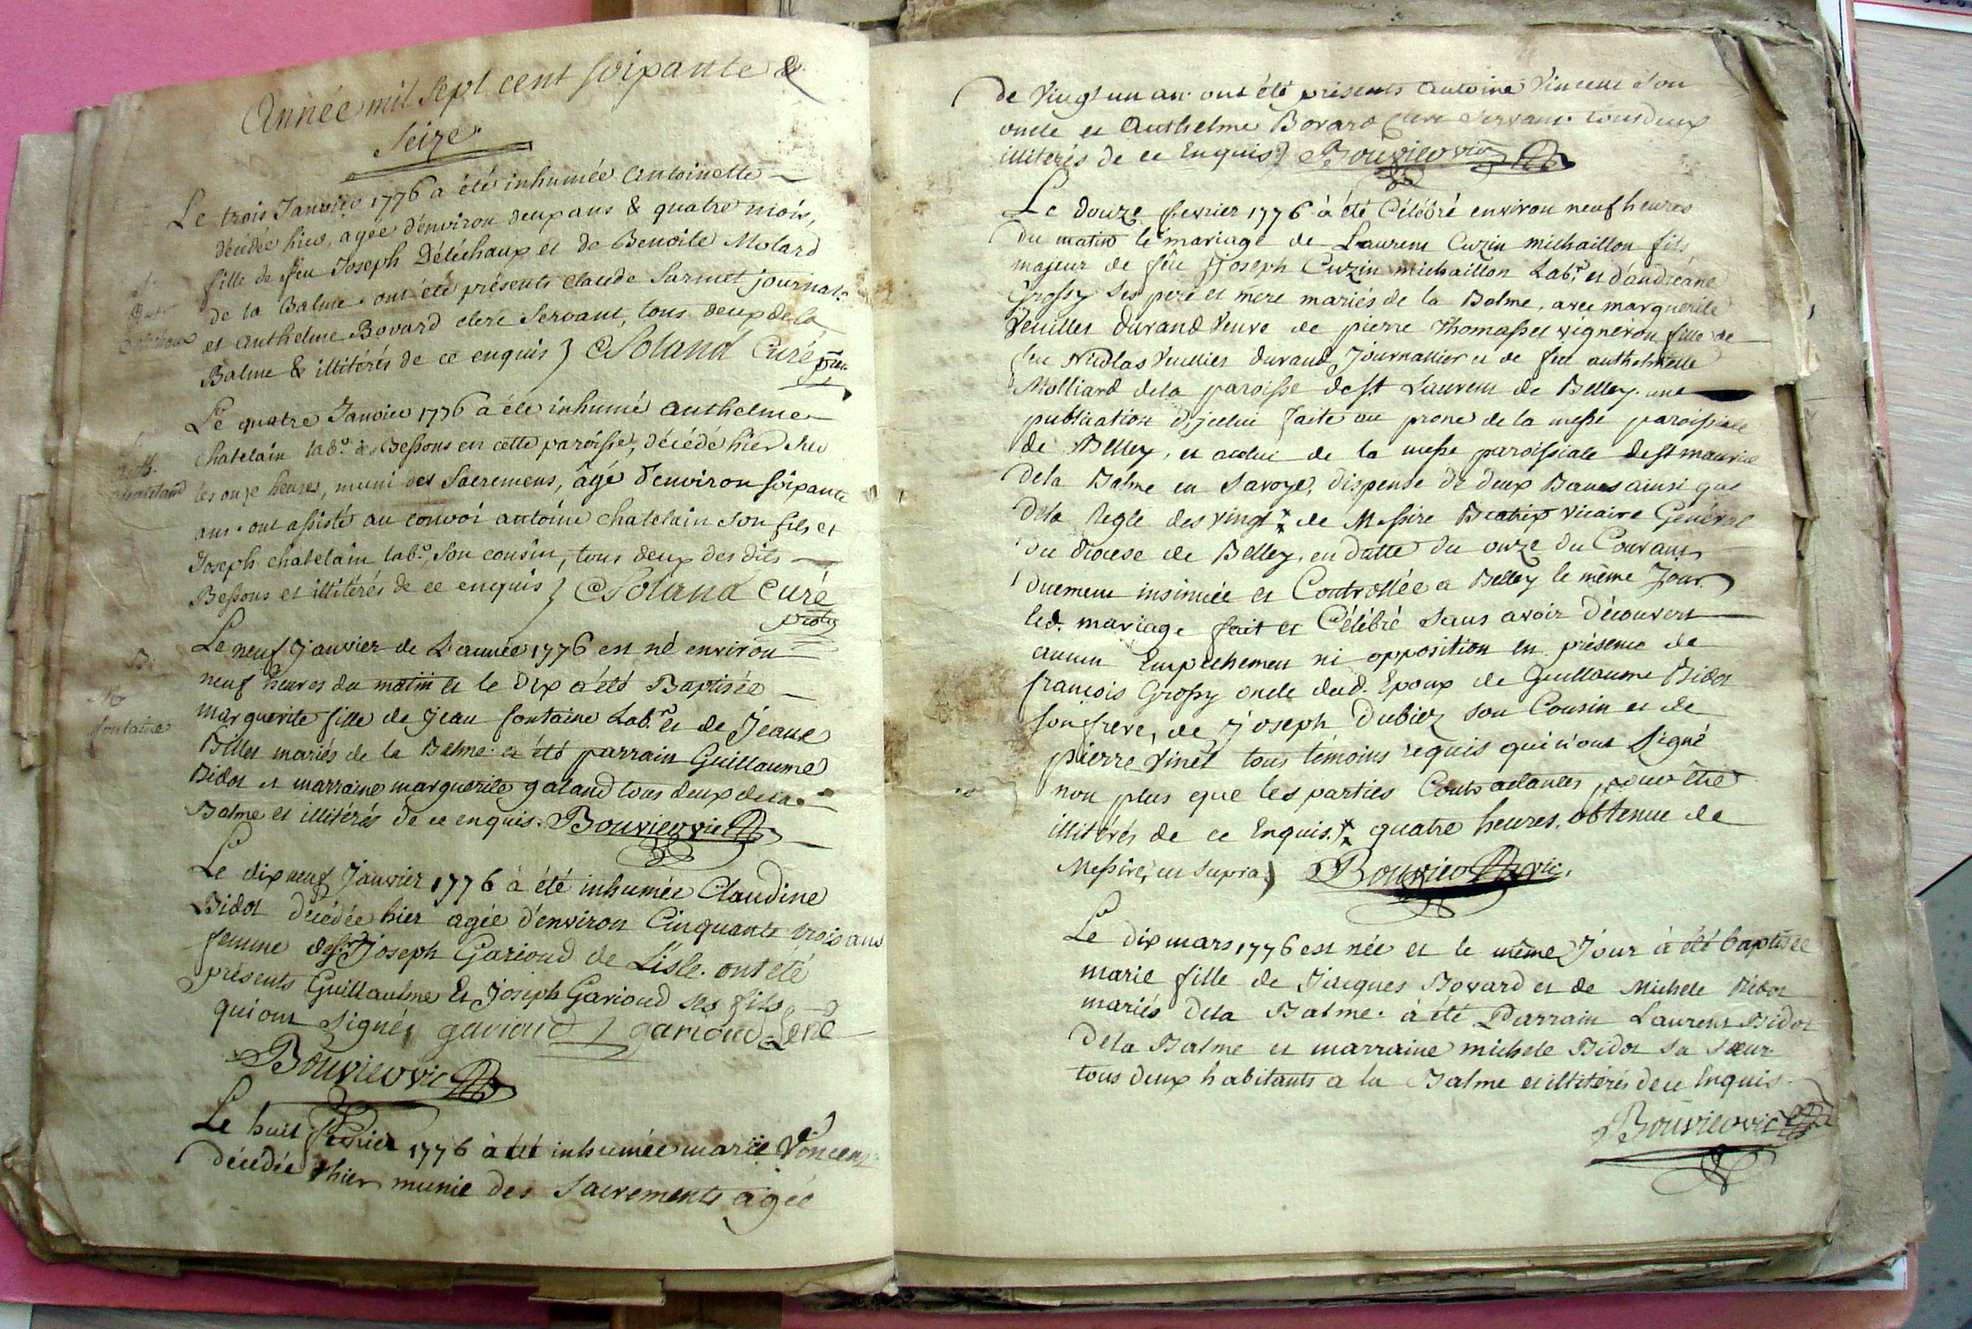 Année mil sept cent soixante &
Seize
Le trois Janvier 1776 a été inhumée antoinette
décédée hier, agée d'environ deux ans & quatre mois,
fille de feu Joseph Déléchaux et de Benoite Molard
de la Balme. ont été présents Claude Sarmet journal.
et anthelme Bovard clerc Servant, tous deux de la
Balme & illitérés de ce enquis } Soland Curé
Le quatre Janvier 1776 a été inhumé anthelme
chatelain lab.r à Bessons en cette paroisse, décédé hier
les onze heures, muni des Sacremens, âgé d'environ soixante
ans. ont assisté au convoi antoine chatelain son fils et
Joseph chatelain lab.r son cousin, tous deux des dits
Bessons et illitérés de ce enquis } Soland Curé
chatelain
Le neuf Janvier de L'année 1776 est né environ
neuf heures du matin et le Dix a été Baptisée
fontaine
marguerite fille de Jean fontaine Lab.r et de Jeane
Billet mariés de la Balme. et été parrain Guillaume
Bidot et marraine marguerite galand tous deux de la
Balme et illitérés de ce enquis. Bouvier vic
Le dix neuf Janvier 1776 à été inhumée Claudine
Bidot décédée hier agée d'environ Cinquante trois ans
femme de Joseph Garioud de Lisle. ont eté
présents Guillaulme Et Joseph Garioud ses fils
qui ont Signé, garioud } garioud
Bouvier vic
Le huit fevrier 1776 à été inhumée marie Vincent
décédée hier munie des Sacrements agée
de Vingt un an ont été présents antoine Vincent son
oncle et Anthelme Bovard clerc Servant tous deux
illiterés de ce Enquis } Bouvier vic
Le douze fevrier 1776 à été Célébré environ neuf heures
du matin le mariage de Laurent Cuzin michaillon fils
majeur de feu Joseph Cuzin michaillon Lab.r et d'andréane
Grossy Ses pere et mere mariés de la Balme, avec marguerite
Veuillet Durand Veuve de pierre Thomasset vigneron fille de
feu Nicolas Vuillet durand Journallier et de feu anthelmette
Molliard de la paroisse de St Laurent de Belley. une
publication d'jcelui faite au prone de la messe paroissiale
de Belley, et de la messe paroissiale de St maurice
de la Balme en Savoye, dispense de deux Bancs ainsi que
de la Regle des vingt de Messire Vicaire Général
du diocese de Belley, en datte du onze du Courant
Duement insinuée et Controllée a Belley le même Jour
led. mariage fait et Célébré sans avoir découvert
aucun Empechement ni opposition en présence de
françois Grossy oncle dud. Epoux de Guillaume Bidot
son frere, de Joseph Dubiez son Cousin et de
pierre Vinet tous témoins requis qui n'ont Signé
non plus que les parties Contractantes, pour être
illitérés de ce Enquis. quatre heures. obtenue de
Messire, ut supra } Bouvier vic.
Le dix mars 1776 est née et le même Jour à été baptisée
marie fille de Jacques Bovard et de Michele Bidot
mariés de la Balme. à été Parrain Laurent Bidot
de la Balme et marraine michele Bidot sa soeur
tous deux habitants a la Balme et illitérés de ce Enquis
Bouvier vic